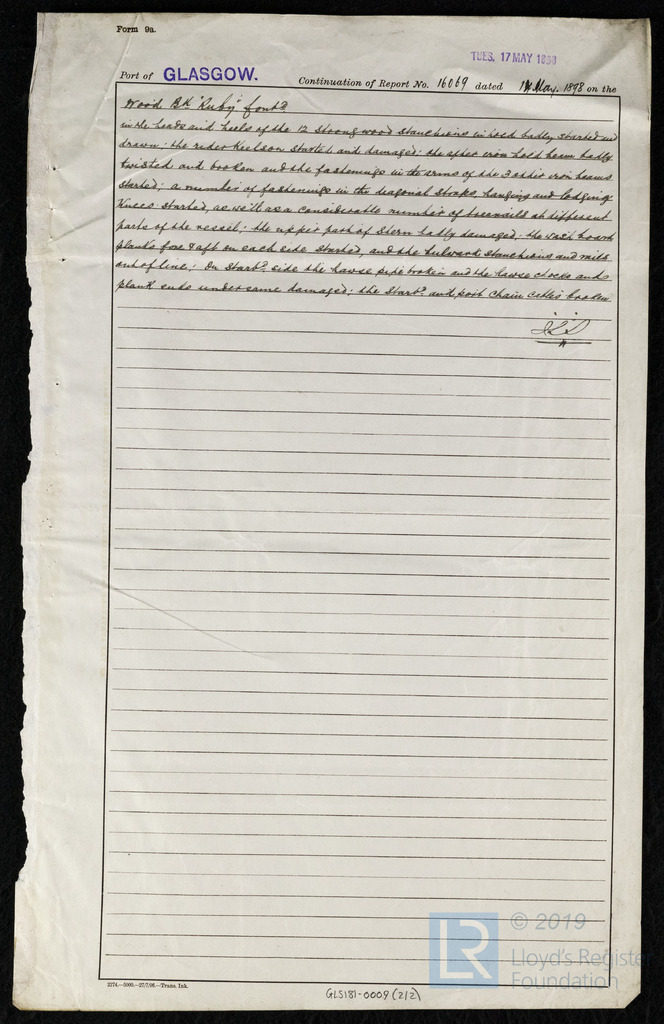 Form 9a.
TUES. 17 MAY 1898
Port of GLASGOW. Continuation of Report No. 16069 dated 14 May. 1898 on the
Wood Bk "Ruby" Contd
in the heads and heels of the 12 strong wood stanchions in hold badly started and
drawn; the rider keelson started and damaged; the after iron hold beam badly
twisted and broken and the fastenings in the arms of the 3 other iron beams
started; a number of fastenings in the diagonal straps, hanging and lodging
Knees started, as well as a considerable number of treenails at different
parts of the vessel; the upper part of Stern badly damaged; the wash boards
planks fore & aft on each side started, and the bulwark stanchions and rails
out of line; On Starbd side the hawse pipe broken and the hawse chocks and
plank ends under same damaged; the Starbd and port chain cables broken
2274.—5000.—27/7/96.—Trans. Ink.
GLS181-0009 (2/2)
LR © 2019
Lloyd's Register
Foundation